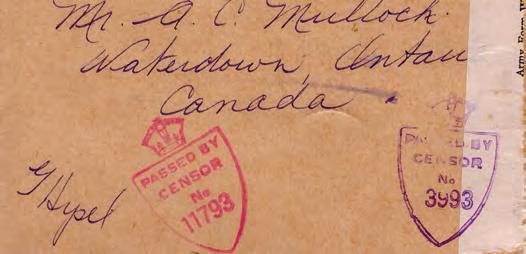 Mr. A. C. Mullock.
Waterdown, Ontar
Canada
PASSED BY
CENSOR
No
11793
PASSED BY
CENSOR
No
3993
Army Form